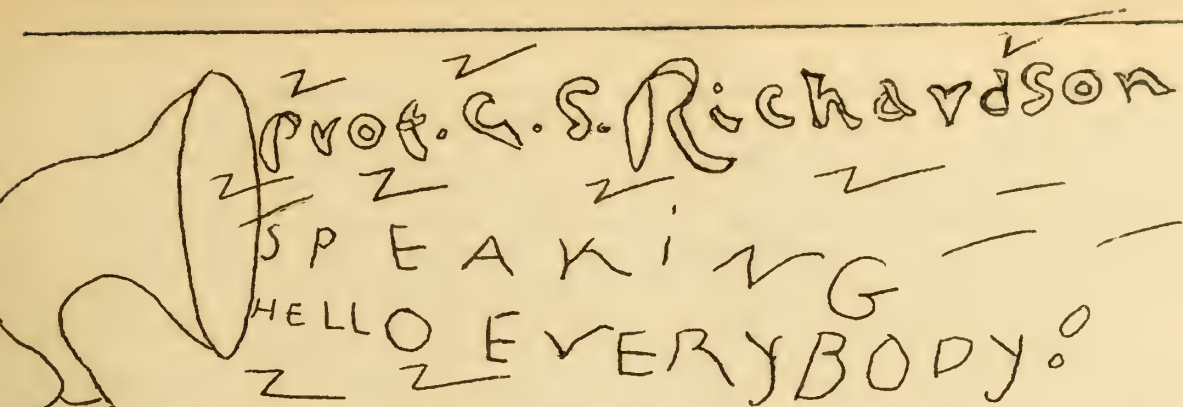 Prof. G. S. Richardson
SPEAKiNG
HELLO EVERYBODY: